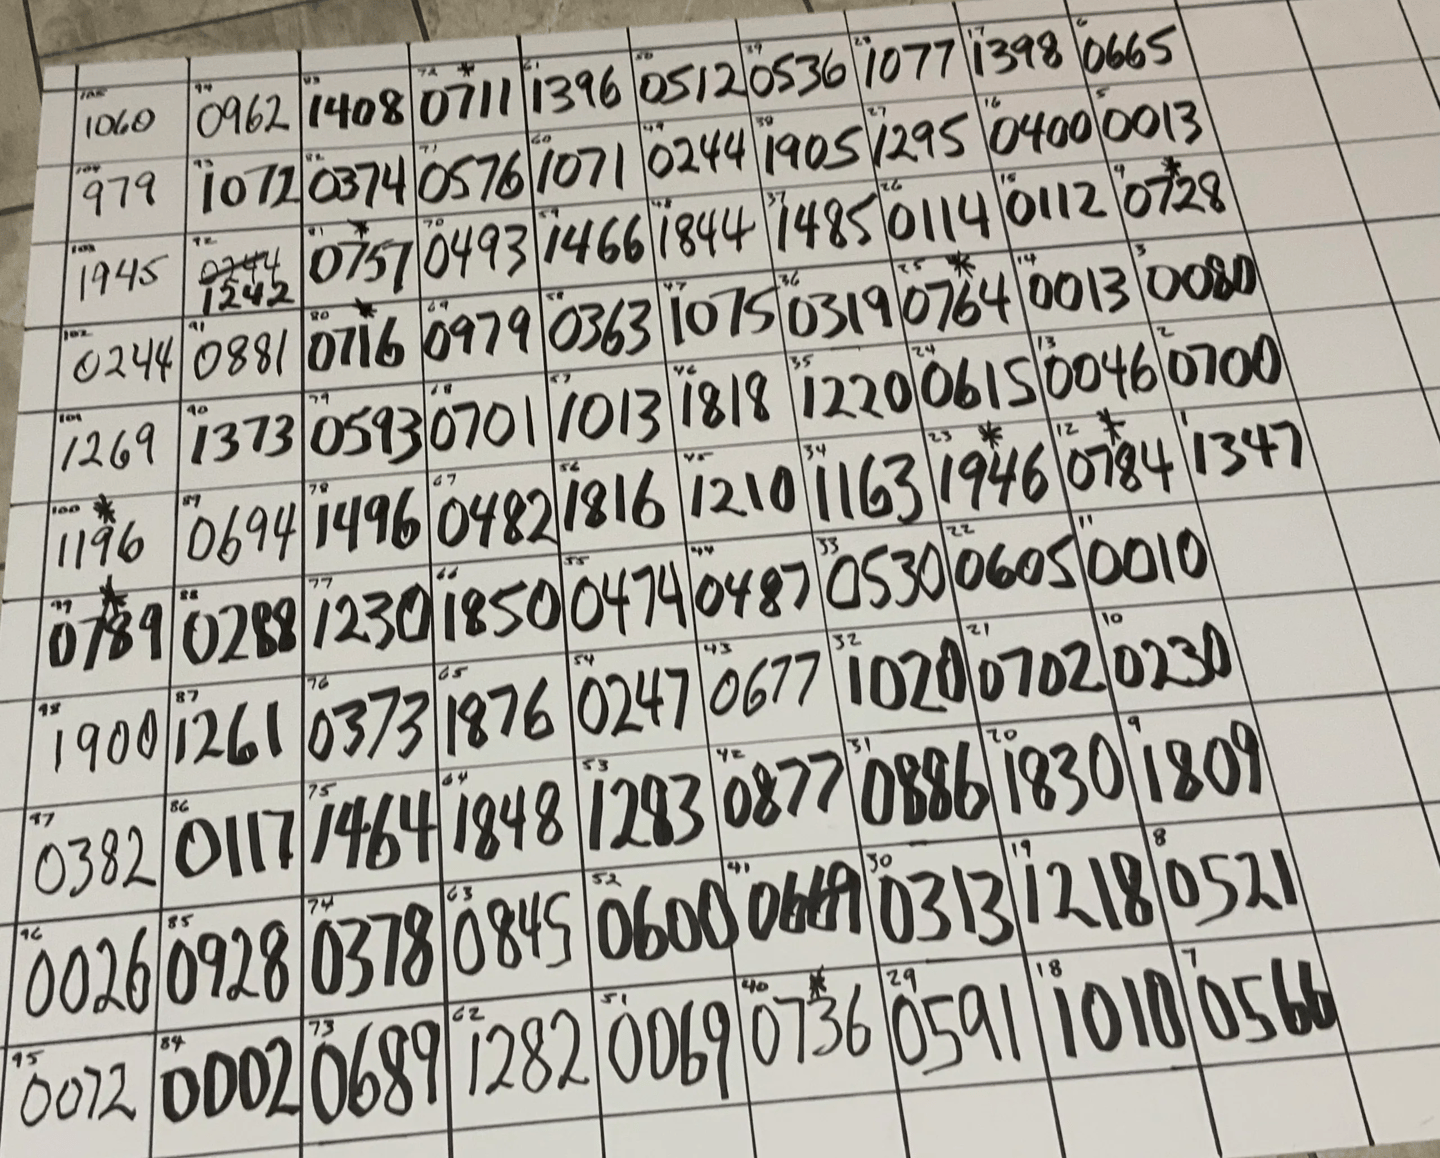 105 1060 94 0962 83 1408 72 * 0711 61 1396 50 0512 39 0536 28 1077 17 1398 6 0665
104 979 93 1072 82 0374 71 0576 60 1071 49 0244 38 1905 27 1295 16 0400 5 0013
103 1945 92 0244 1242 81 * 0757 70 0493 59 1466 48 1844 37 1485 26 0114 15 0112 4 * 0728
102 0244 91 0881 80 * 0716 69 0979 58 0363 47 1075 36 0319 25 * 0764 14 0013 3 0080
101 1269 90 1373 79 0593 68 0701 57 1013 46 1818 35 1220 24 0615 13 0046 2 0700
100 * 1196 89 0694 78 1496 67 0482 56 1816 45 1210 34 1163 23 * 1946 12 * 0784 1 1347
99 * 0789 88 0288 77 1230 66 1850 55 0474 44 0487 33 0530 22 0605 11 0010
98 1900 87 1261 76 0373 65 1876 54 0247 43 0677 32 1020 21 0702 10 0230
97 0382 86 0117 75 1464 64 1848 53 1283 42 0877 31 0886 20 1830 9 1809
96 0026 85 0928 74 0378 63 0845 52 0600 41 30 0313 19 1218 8 0521
95 0072 84 0002 73 0689 62 1282 51 0069 40 * 0736 29 0591 18 1010 7 0566